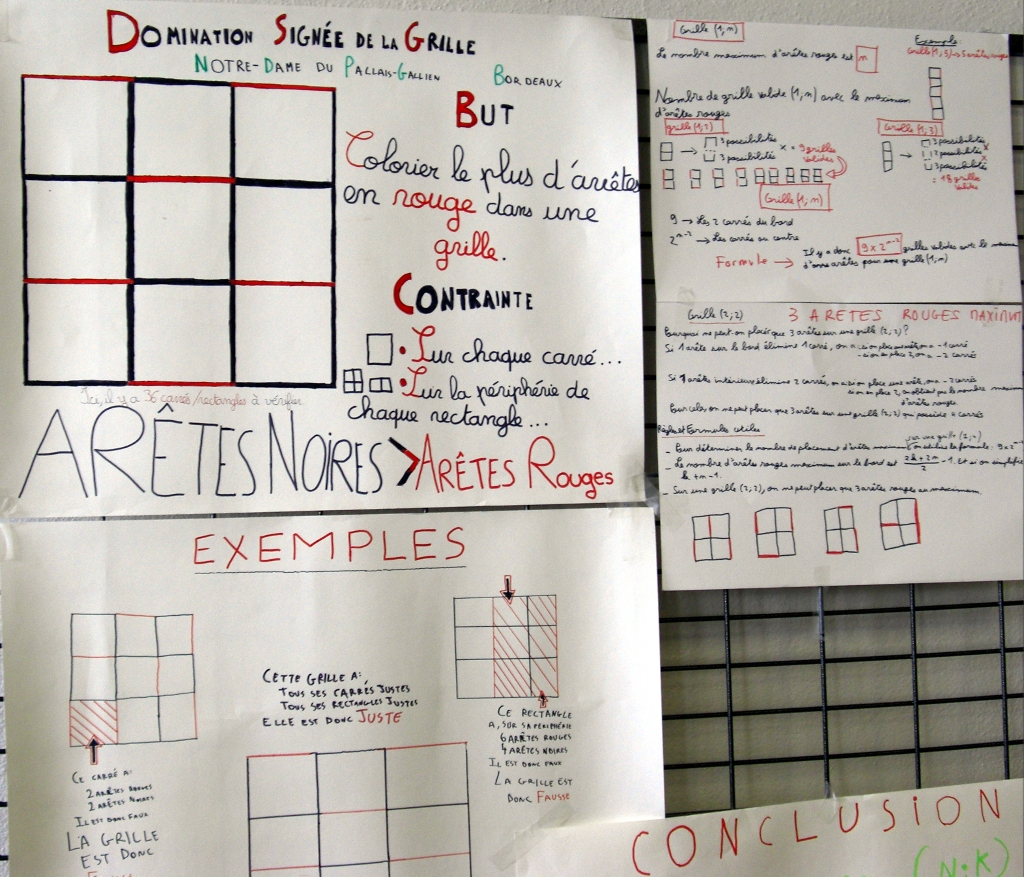 DOMINATION SIGNÉE DE LA GRILLE
NOTRE-DAME DU PALLAIS-GALLIEN BORDEAUX
BUT
Colorier le plus d'arêtes
en rouge dans une
grille.
CONTRAINTE
• Sur chaque carré...
• Sur la périphérie de
chaque rectangle...
Ici, il y a 36 carrés/rectangles à vérifier.
ARÊTES NOIRES > ARÊTES Rouges
Grille (1,n)
Le nombre maximum d'arêtes rouges est n
Exemple
Grille (1,5) → 5 arêtes rouges
Nombre de grille valide (1,n) avec le maximum
d'arêtes rouges
grille (1,2)
3 possibilités
3 possibilités
× = 9 grilles
valides
Grille (1,3)
3 possibilités ×
2 possibilités ×
3 possibilités
= 18 grilles
valides
Grille (1,n)
9 → Les 2 carrés du bord
2ⁿ⁻² → Les carrés au centre
Formule → Il y a donc 9×2ⁿ⁻² grilles valides avec le maximum
d'arêtes pour une grille (1,n)
Grille (2,2) 3 ARETES ROUGES MAXIMUM
Pourquoi ne peut-on placer que 3 arêtes sur une grille (2,2)?
Si 1 arête sur le bord élimine 1 carré, on a: si on place une arête, on a -1 carré
- si on place 2, on a -2 carrés
Si 1 arête intérieure élimine 2 carrés, on a: si on place une arête, on a -2 carrés
si on place 2, on obtient pas le nombre maximum
d'arêtes rouges
Pour cela, on ne peut placer que 3 arêtes sur une grille (2,2) qui possède 4 carrés
Règles et Formules utiles
- Pour déterminer le nombre de placement d'arête maximum sur une grille (1,n) on utilise la formule: 9×2ⁿ⁻²
- Le nombre d'arêtes rouges maximum sur le bord est (2k+2n)/2 -1. Et si on simplifie
k+n-1.
- Sur une grille (2,2), on ne peut placer que 3 arêtes rouges au maximum
EXEMPLES
CE CARRÉ A:
2 ARÊTES ROUGES
2 ARÊTES NOIRES
IL EST DONC FAUX
LA GRILLE
EST DONC
CETTE GRILLE A:
TOUS SES CARRÉS JUSTES
TOUS SES RECTANGLES JUSTES
ELLE EST DONC JUSTE
CE RECTANGLE
A, SUR SA PÉRIPHÉRIE
6 ARÊTES ROUGES
4 ARÊTES NOIRES
IL EST DONC FAUX
LA GRILLE EST
DONC FAUSSE
CONCLUSION
(N;K)